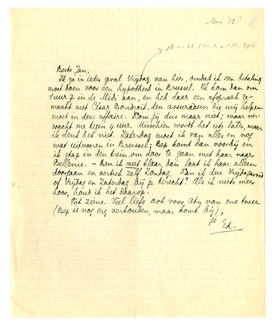 Mei 33?
Beste Jan,
Ik ga in ieder geval Vrijdag van hier, omdat ik een betaling
moet doen voor een hypotheek in Brussel. Ik kom dan om
1 uur 7 in de Midi aan, en heb daar een afspraak ge-
maakt met César Bondroit, den assuradeur die mij helpen
moet in deze affaire. Kom jij dus maar niet; maar ver-
wacht me tegen 4 uur. Misschien wordt het iets later, maar
ik denk het niet. Zaterdag moet ik van alles en nog
wat uitvoeren in Brussel; Bep komt dan voorbij en
ik stap in den trein om door te gaan met haar naar
Bellevue. - Ben ik niet klaar, dan laat ik haar alleen
doorgaan en vertrek zelf Zondag. Kan ik den Vrijdagavond
of Vrijdag en Zaterdag bij je terecht? Als ik niets meer
hoor, houd ik het daarop.
Tot ziens. Veel liefs ook voor Aty van ons twee
(Bep is nog erg verkouden, maar komt bij),
je
Ed.